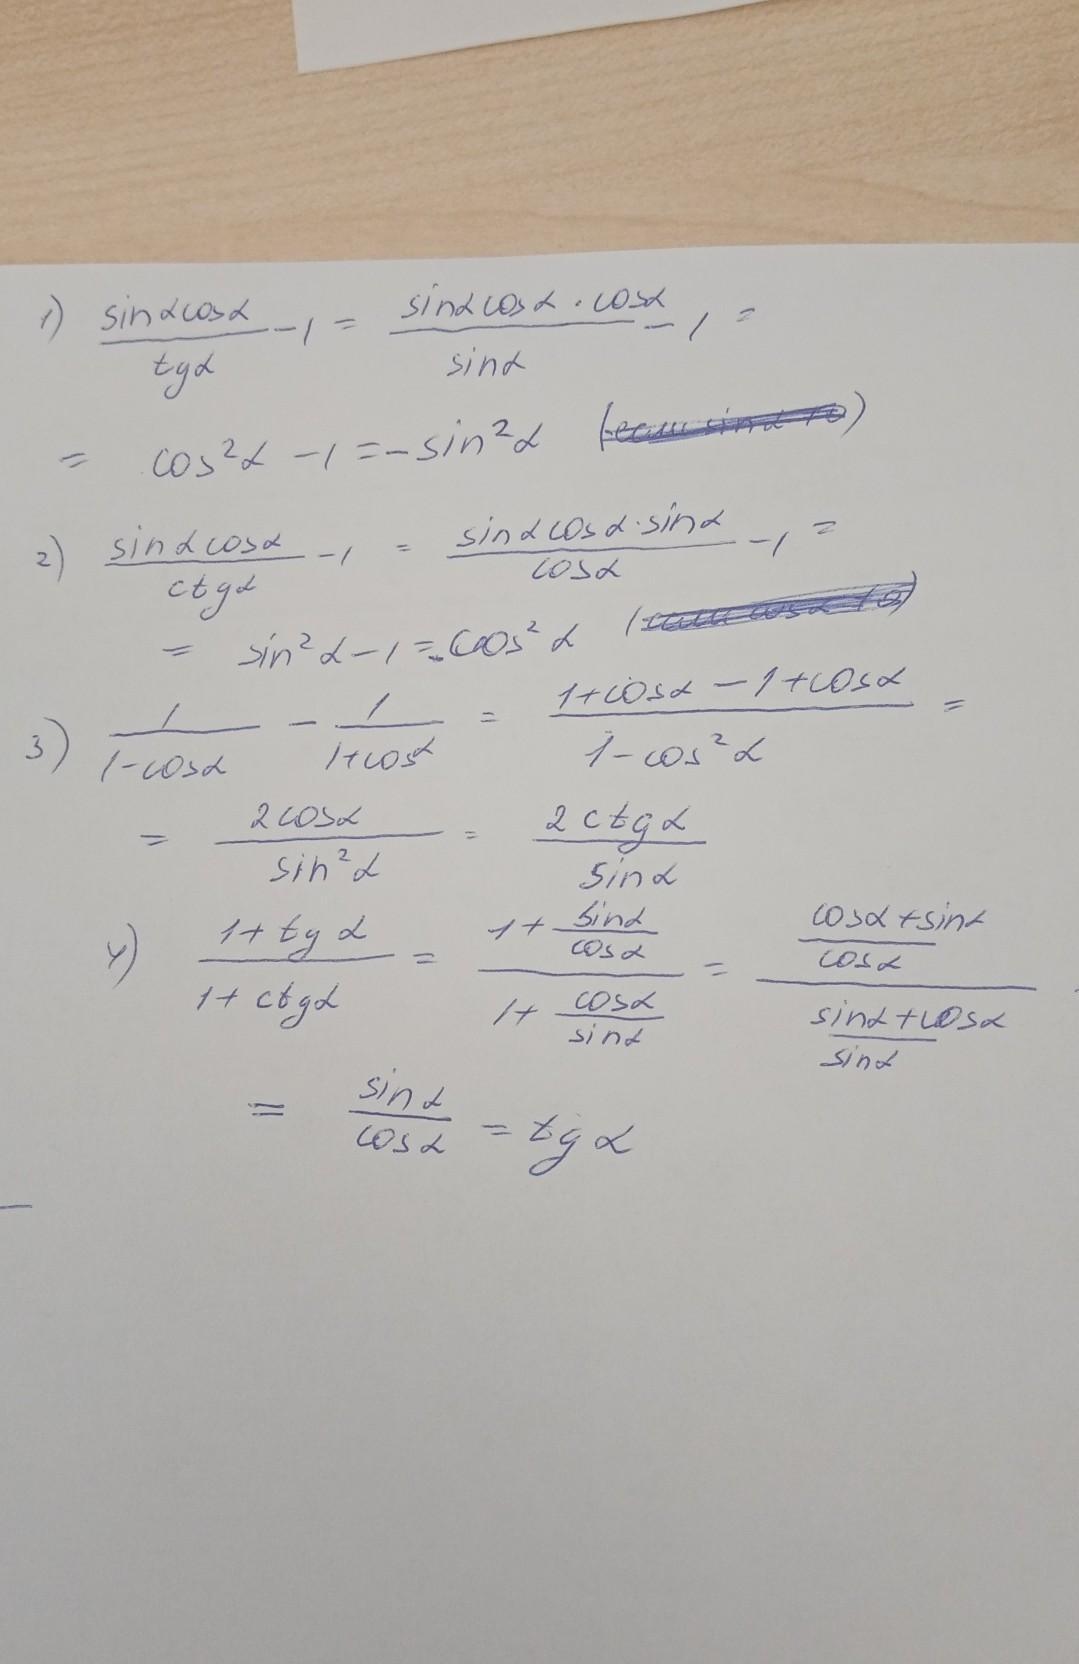 1) sinαcosα/tgα - 1 = sinαcosα · cosα/sinα - 1 =
= cos²α - 1 = - sin²α ( )
2) sinαcosα/ctgα - 1 = sinαcosα · sinα/cosα - 1 =
= sin²α - 1 = - cos²α ( )
3) 1/1-cosα - 1/1+cosα = 1+cosα - 1+cosα/1-cos²α =
= 2cosα/sin²α = 2ctgα/sinα
4) 1+tgα/1+ctgα = 1+ sinα/cosα / 1+ cosα/sinα = cosα+sinα/cosα / sinα+cosα/sinα
= sinα/cosα = tgα